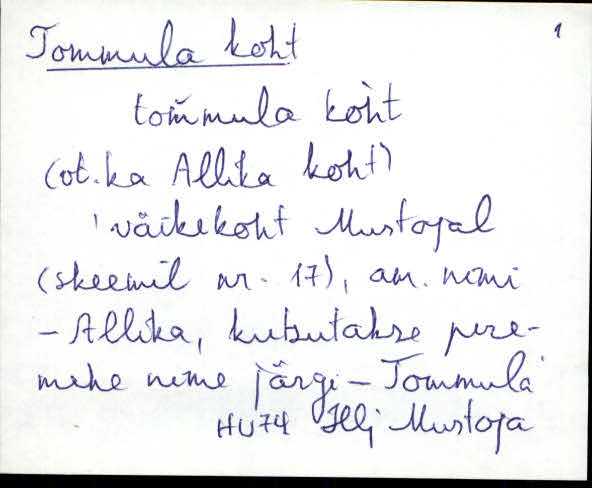 1
Tommula koht
tom̆mula koh̀t
(vt. ka Allika koht)
väikekoht Mustojal
(skeemil nr. 17), am. nimi
- Allika, kutsutakse pere-
mehe nime järgi - Tommula
HU74 Hlj Mustoja